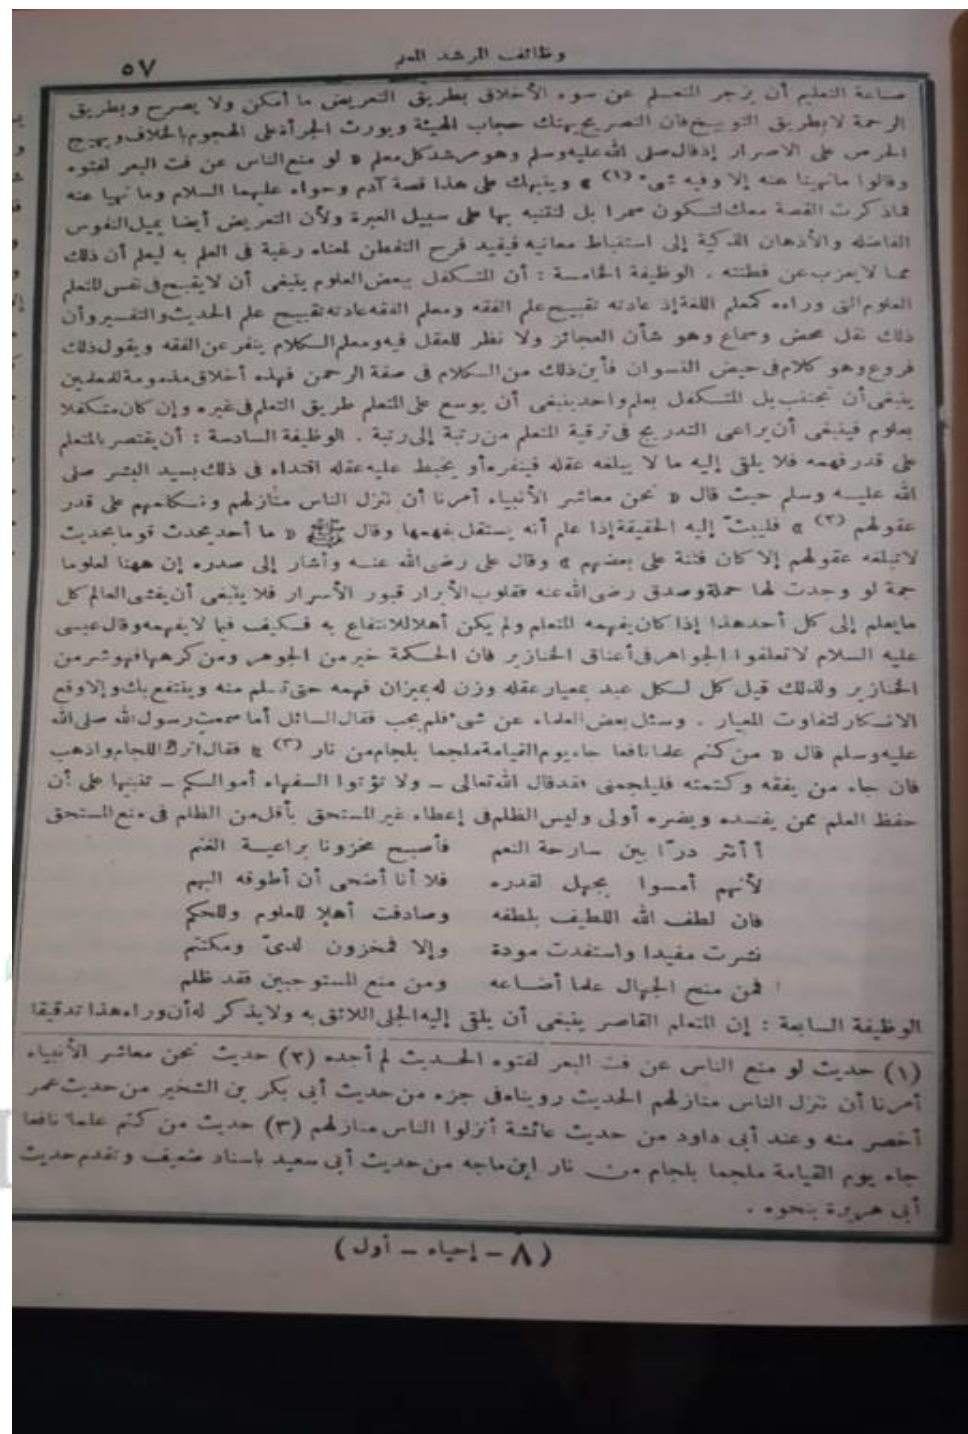 وظائف المرشد المعلم
٥٧
صناعة التعليم أن يزجر المتعلم عن سوء الأخلاق بطريق التعريض ما أمكن ولا يصرح وبطريق
الرحمة لا بطريق التوبيخ فان التصريح يهتك حجاب الهيئة ويورث الجرأة على الهجوم بالخلاف ويهيج
الحرص على الاصرار إذ قال صلى الله عليه وسلم وهو مرشد كل معلم « لو منع الناس عن فت البعر لفتوه
وقالوا ما نهينا عنه إلا وفيه شىء (١) » وينبهك على هذا قصة آدم وحواء عليهما السلام وما نهيا عنه
فما ذكرت القصة معك لتكون سمرا بل لتتنبه بها على سبيل العبرة ولأن التعريض أيضا يميل النفوس
الفاضلة والأذهان الذكية إلى استنباط معانيه فيفيد فرح التفطن لمعناه رغبة فى العلم به ليعلم أن ذلك
مما لا يعزب عن فطنته . الوظيفة الخامسة : أن المتكفل ببعض العلوم ينبغى أن لا يقبح فى نفس المتعلم
العلوم التى وراءه كمعلم اللغة إذ عادته تقبيح علم الفقه ومعلم الفقه عادته تقبيح علم الحديث والتفسير وأن
ذلك نقل محض وسماع وهو شأن العجائز ولا نظر للعقل فيه ومعلم الكلام ينفر عن الفقه ويقول ذلك
فروع وهو كلام فى حيض النسوان فأين ذلك من الكلام فى صفة الرحمن فهذه أخلاق مذمومة للمعلمين
ينبغى أن تجتنب بل المتكفل بعلم واحد ينبغى أن يوسع على المتعلم طريق التعلم فى غيره وإن كان متكفلا
بعلوم فينبغى أن يراعى التدريج فى ترقية المتعلم من رتبة إلى رتبة . الوظيفة السادسة : أن يقتصر بالمتعلم
على قدر فهمه فلا يلقى إليه ما لا يبلغه عقله فينفره أو يخبط عليه عقله اقتداء فى ذلك بسيد البشر صلى
الله عليه وسلم حيث قال « نحن معاشر الأنبياء أمرنا أن ننزل الناس منازلهم ونكلمهم على قدر
عقولهم (٢) » فليبث إليه الحقيقة إذا علم أنه يستقل بفهمها وقال ﷺ « ما أحد يحدث قوما بحديث
لا تبلغه عقولهم إلا كان فتنة على بعضهم » وقال على رضى الله عنه وأشار إلى صدره إن ههنا لعلوما
جمة لو وجدت لها حملة وصدق رضى الله عنه فقلوب الأبرار قبور الأسرار فلا ينبغى أن يفشى العالم كل
ما يعلم إلى كل أحد هذا إذا كان يفهمه المتعلم ولم يكن أهلا للانتفاع به فكيف فيما لا يفهمه وقال عيسى
عليه السلام لا تعلقوا الجواهر فى أعناق الخنازير فان الحكمة خير من الجوهر ومن كرهها فهو شر من
الخنازير ولذلك قيل كل لكل عبد بمعيار عقله وزن له بميزان فهمه حتى تسلم منه وينتفع بك وإلا وقع
الانكار لتفاوت المعيار . وسئل بعض العلماء عن شىء فلم يجب فقال السائل أما سمعت رسول الله صلى الله
عليه وسلم قال « من كتم علما نافعا جاء يوم القيامة ملجما بلجام من نار (٣) » فقال اترك اللجام واذهب
فان جاء من يفقه وكتمته فليلجمنى فقد قال الله تعالى ــ ولا تؤتوا السفهاء أموالكم ــ تنبيها على أن
حفظ العلم ممن يفسده ويضره أولى وليس الظلم فى إعطاء غير المستحق بأقل من الظلم فى منع المستحق
أأنثر درّا بين سارحة النعم فأصبح مخزونا براعية الغنم
لأنهم أمسوا بجهل لقدره فلا أنا أضحى أن أطوقه البهم
فان لطف الله اللطيف بلطفه وصادفت أهلا للعلوم وللحكم
نشرت مفيدا واستفدت مودة وإلا فمخزون لدىّ ومكتتم
فمن منح الجهال علما أضاعه ومن منع المستوجبين فقد ظلم
الوظيفة السابعة : إن المتعلم القاصر ينبغى أن يلقى إليه الجلى اللائق به ولا يذكر له أن وراء هذا تدقيقا
(١) حديث لو منع الناس عن فت البعر لفتوه الحديث لم أجده (٢) حديث نحن معاشر الأنبياء
أمرنا أن ننزل الناس منازلهم الحديث رويناه فى جزء من حديث أبى بكر بن الشخير من حديث عمر
أخصر منه وعند أبى داود من حديث عائشة أنزلوا الناس منازلهم (٣) حديث من كتم علما نافعا
جاء يوم القيامة ملجما بلجام من نار ابن ماجه من حديث أبى سعيد باسناد ضعيف وتقدم حديث
أبى هريرة بنحوه .
(٨ ــ إحياء ــ أول)